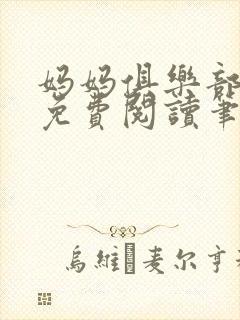 妈妈俱樂部
免費閱讀筆
烏維·麦尔亨利